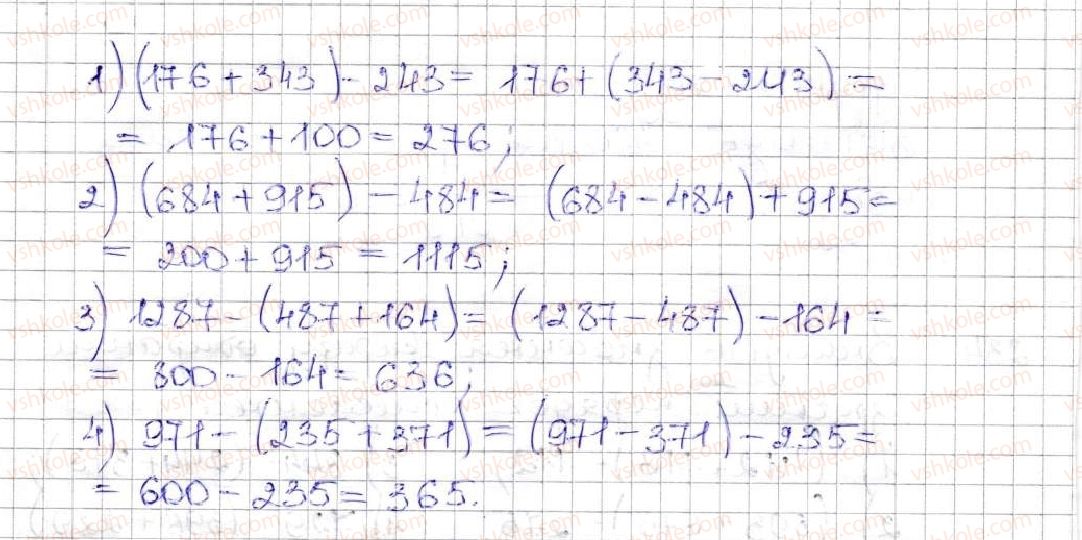 1) (176 + 343) - 243 = 176 + (343 - 243) =
= 176 + 100 = 276;
2) (684 + 915) - 484 = (684 - 484) + 915 =
= 200 + 915 = 1115;
3) 1287 - (487 + 164) = (1287 - 487) - 164 =
= 800 - 164 = 636;
4) 971 - (235 + 371) = (971 - 371) - 235 =
= 600 - 235 = 365.
vshkole.com